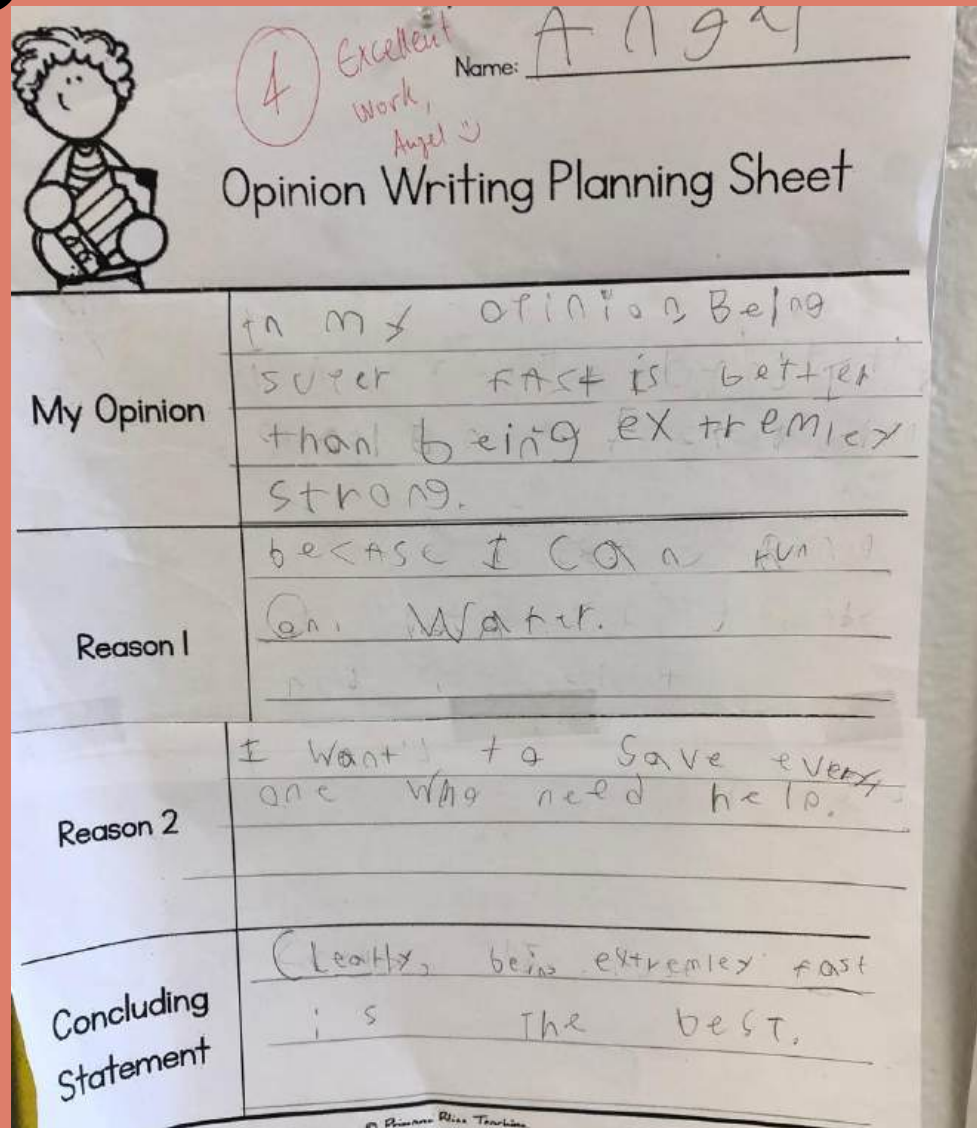 4 Excellent
work,
Angel
Name: Angel
Opinion Writing Planning Sheet
My Opinion
In my opinion, Being
super fast is better
than being extremley
strong.
Reason 1
becase I can run
on water.
Reason 2
I want to save every
one who need help.
Concluding
Statement
Clearly, being extremley fast
is The best.